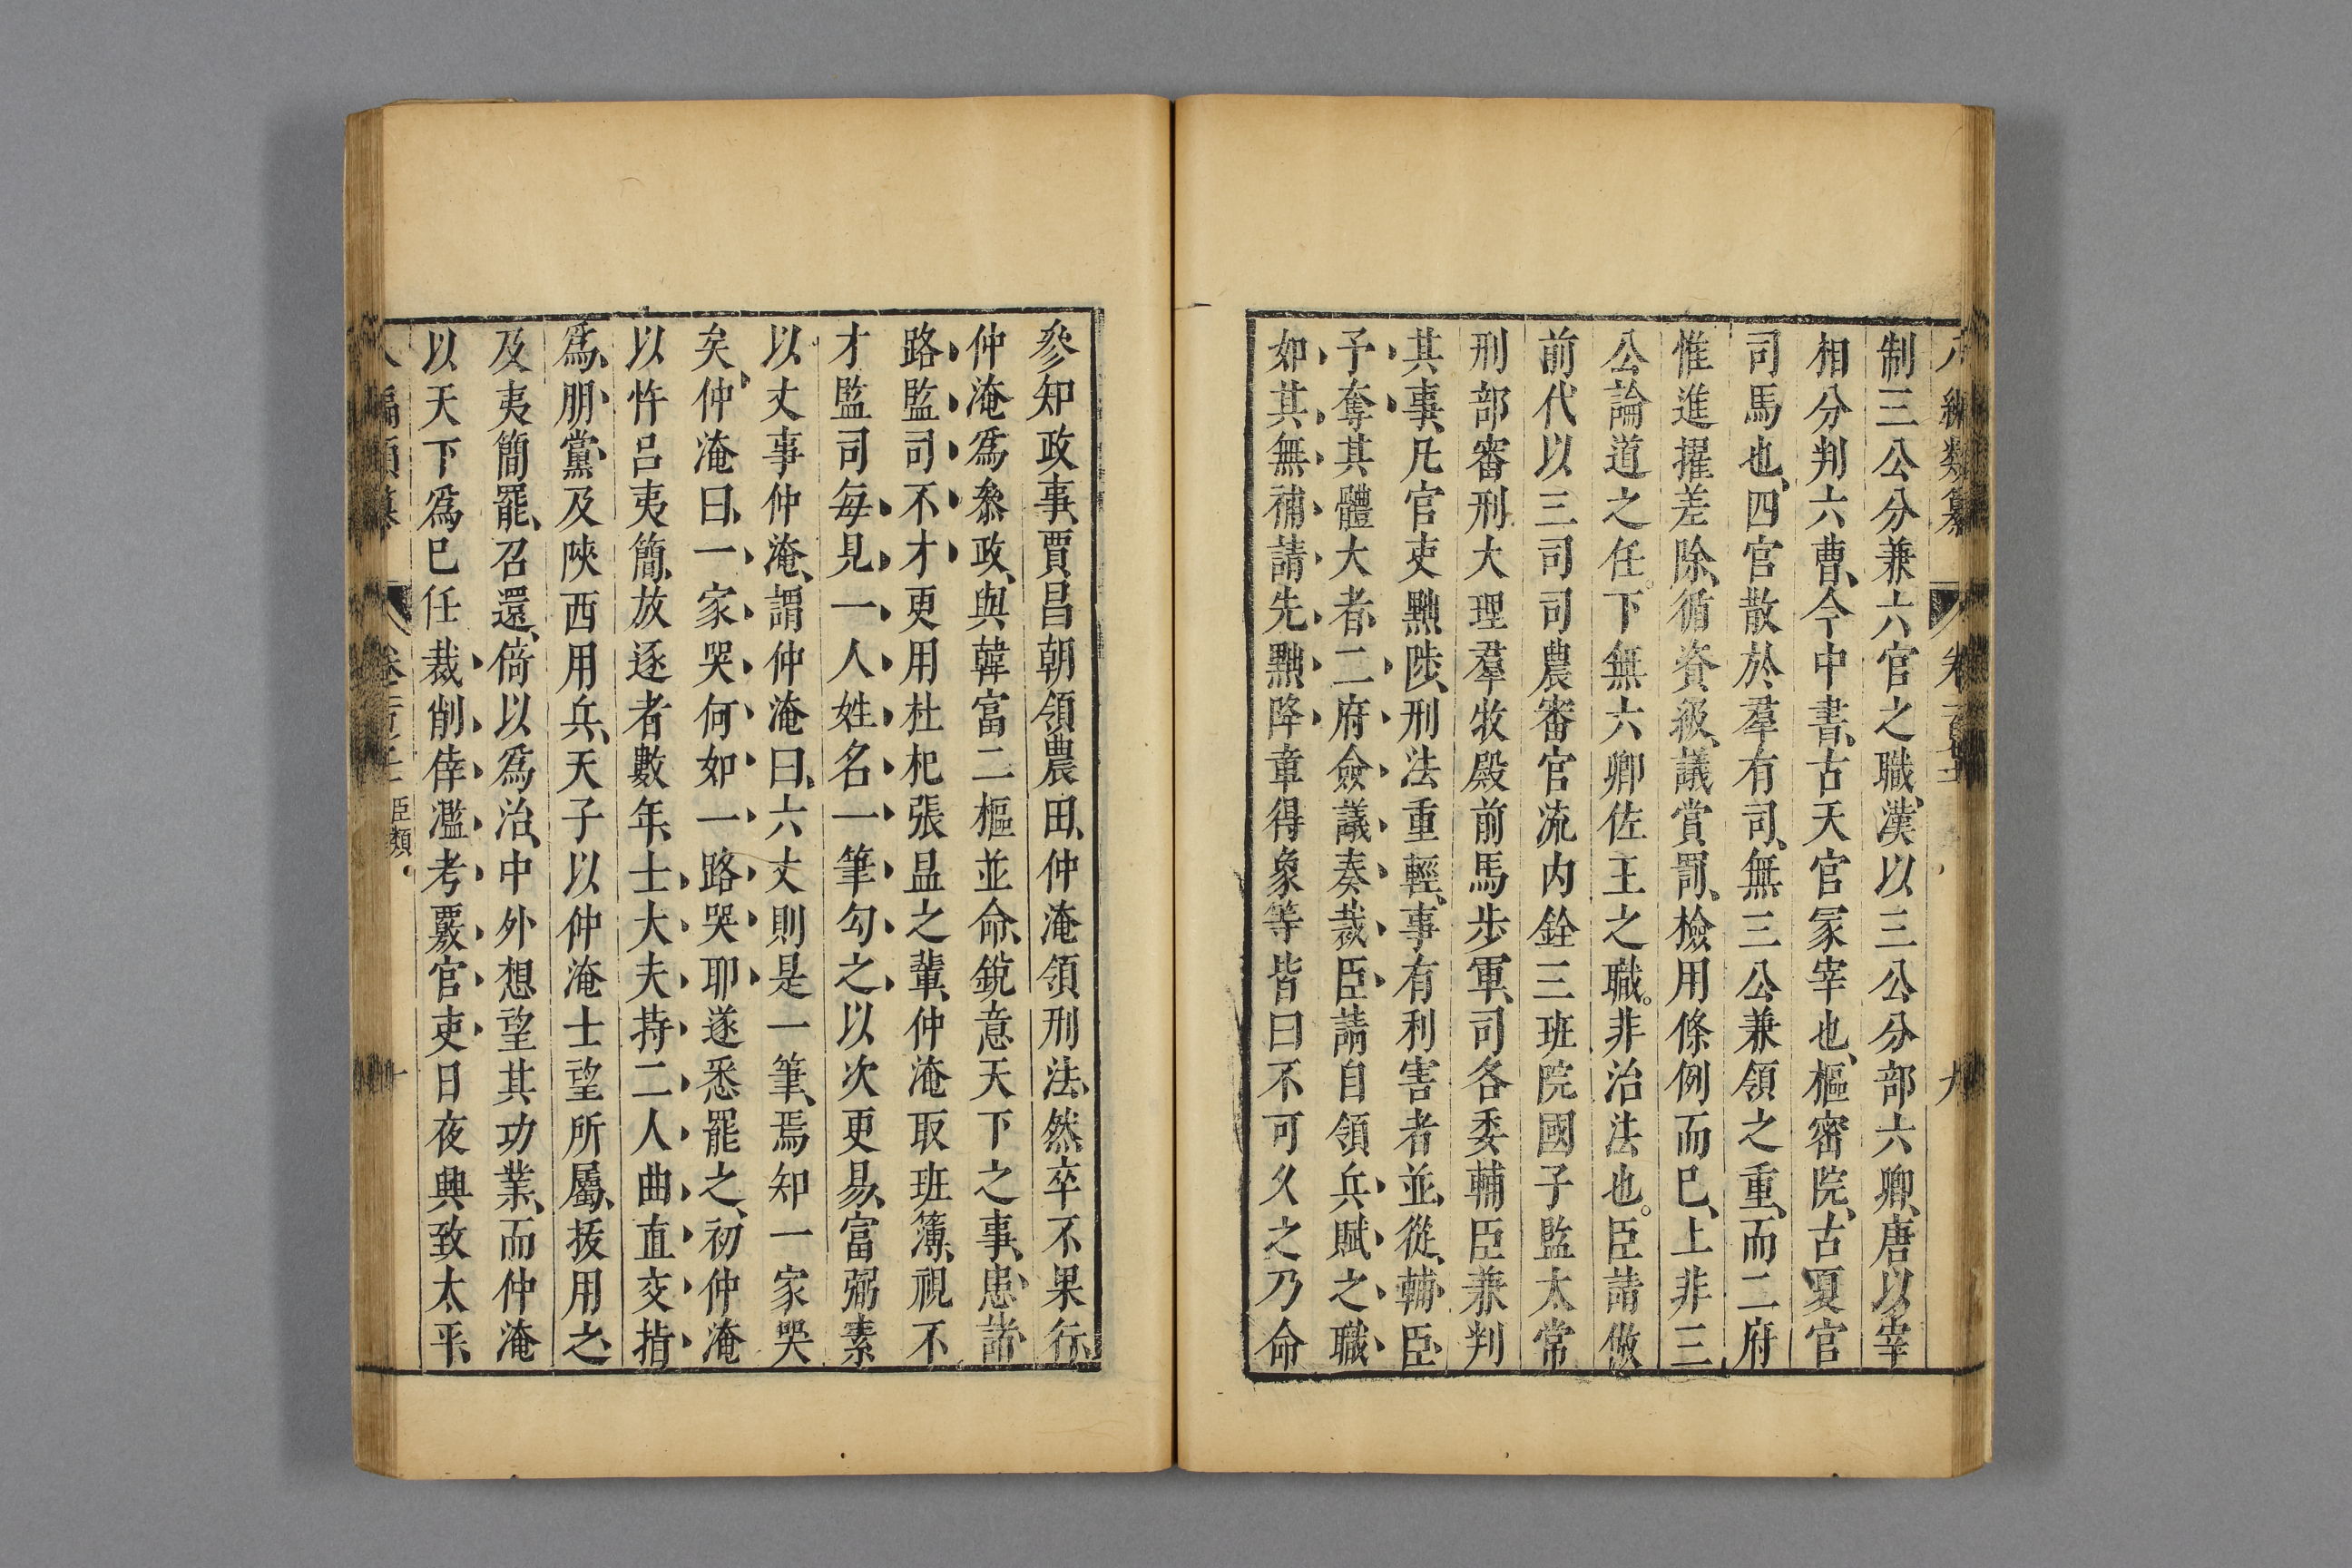 制三公分兼六官之職、漢以三公分部六卿、唐以宰
相分判六曹、今中書、古天官冢宰也、樞密院、古夏官
司馬也、四官散於羣有司、無三公兼領之重、而二府
惟進擢差除、循資級、議賞罰、檢用條例而已、上非三
公論道之任。下無六卿佐王之職。非治法也。臣請倣
前代以三司司農審官流内銓三班院國子監太常
刑部審刑大理羣牧殿前馬步軍、司各委輔臣兼判
其事、凡官吏黜陟、刑法重輕、事有利害者並、從、輔臣
予奪其體大者、二府僉議奏裁、臣請自領兵賦之職
如其無補請先黜降章得象等皆曰不可久之乃命
參知政事、賈昌朝領農田、仲淹領刑法、然卒不果行、
仲淹爲叅政、與韓富二樞並命、銳意天下之事、患諸
路監司不才更用杜杞張昷之輩、仲淹取班簿、視不
才監司每見一人姓名一筆勾之以次更易、富弼素
以丈事仲淹、謂仲淹曰、六丈則是一筆、焉知一家哭
矣、仲淹曰、一家哭何如一路哭耶遂悉罷之、初仲淹
以忤呂夷簡、放逐者數年、士大夫持二人曲直交指
爲朋黨、及陝西用兵、天子以仲淹士望所屬、拔用之、
及夷簡罷、召還、倚以爲治、中外想望其功業、而仲淹
以天下爲已任裁削倖濫考覈官吏日夜興致太平、
臣類